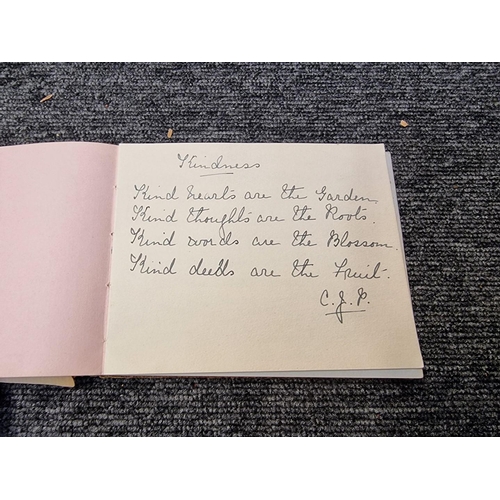 Kindness
Kind hearts are the Garden,
Kind thoughts are the Roots.
Kind words are the Blossom.
Kind deeds are the Fruit.
C. J. P.